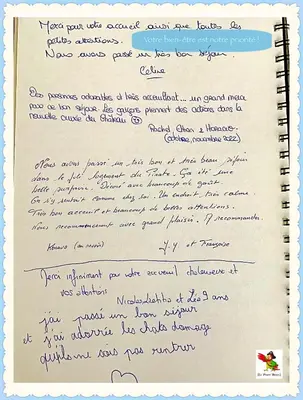 Merci pour votre accueil ainsi que toutes les
petites attentions.
Votre bien-être est notre priorité !
Nous avons passé un très bon séjour.
Celine
Des personnes adorables et très accueillant... un grand merci
pour ce bon séjour. Les garçons prennent des actions dans la
nouvelle
du Château
Rachel, Ethan &
(octobre, novembre 2022)
Nous avons passé un très bon et très beau séjour
dans le joli logement du Pirate. Ça été une
belle surprise. Décoré avec beaucoup de goût.
On s'y sentait comme chez soi. Un endroit très calme.
Très bon accueil et beaucoup de belles attentions.
Nous recommencerons avec grand plaisir. À recommander.
J.Y et Françoise
Merci infiniment pour votre accueil chaleureux et
vos attentions
et Léo 9 ans
j'ai passé un bon séjour
et j'ai adorrée les chats domage
qu'ils ne sois pas rentrer